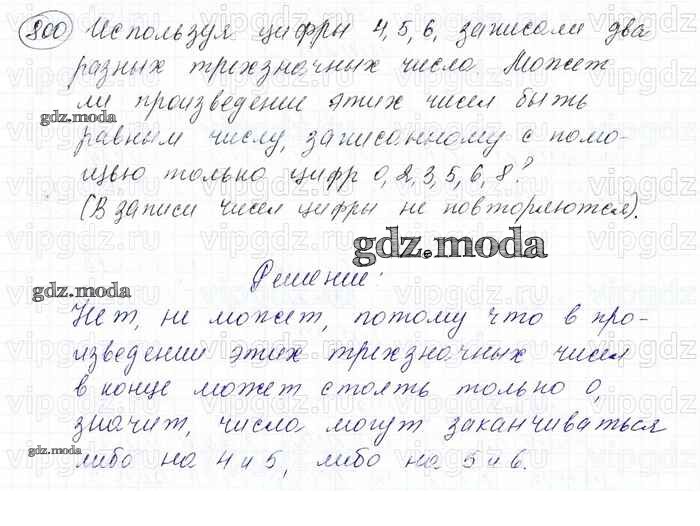 800 Используя цифры 4, 5, 6, записали два
разных трехзначных число. Может
ли произведение этих чисел быть
gdz.moda
равным числу, записанному с помо-
щью только цифр 0, 2, 3, 5, 6, 8?
(В записи чисел цифры не повторляются).
gdz.moda
Решение:
gdz.moda
Нет, не может, потому что в про-
изведении этих трехзначных чисел
в конце может стоять только 0,
значит, числа могут заканчиваться
gdz.moda
либо на 4 и 5, либо на 5 и 6.
vipgdz.ru